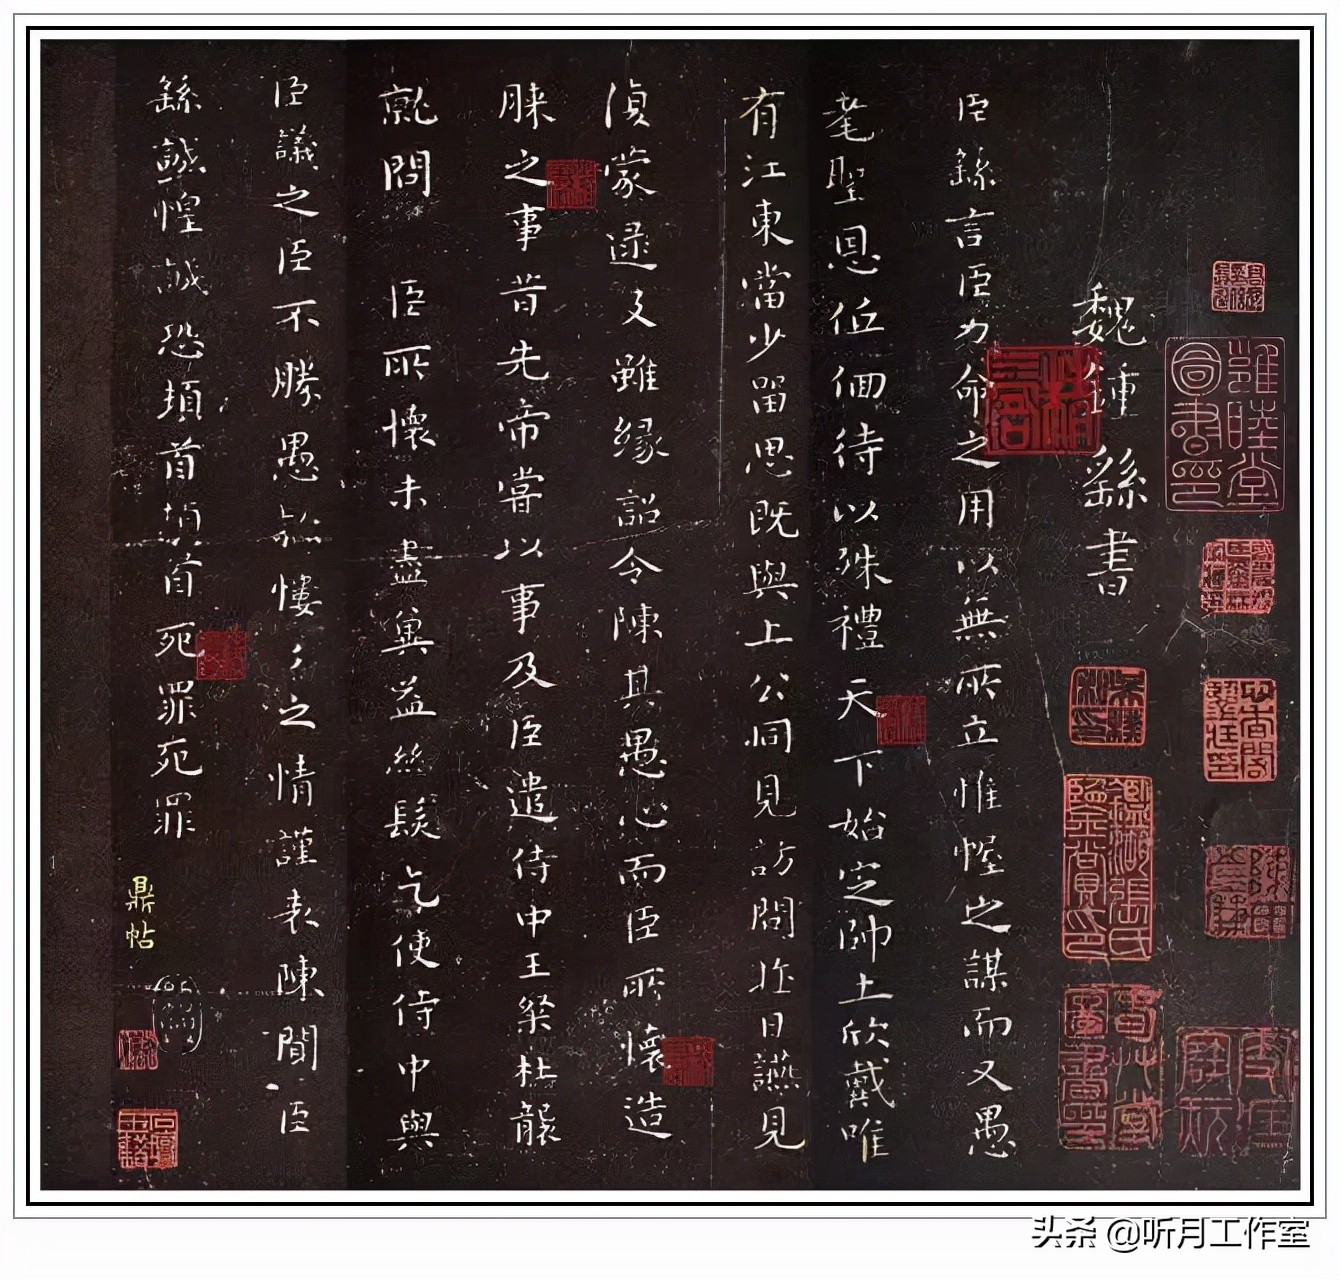 魏鍾繇書
臣繇言臣力命之用以無所立惟幄之謀而又愚
耄聖恩低佪待以殊禮天下始定帥土欣戴唯
有江東當少留思既與上公同見訪問昨日讌見
復蒙逮及雖緣詔令陳其愚心而臣所懷造
膝之事昔先帝嘗以事及臣遣侍中王粲杜襲
就問 臣所懷未盡冀益絲髮乞使侍中與
臣議之臣不勝愚款慺〻之情謹表陳聞臣
繇誠惶誠恐頓首頓首死罪死罪
鼎帖
頭条 @听月工作室